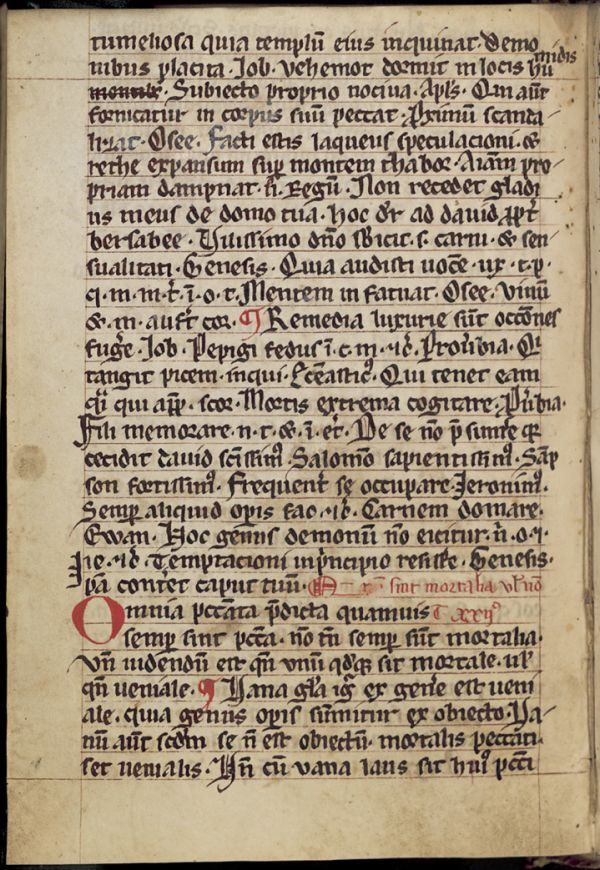 tumeliosa quia templũ eius inquinat. Demo
nibus placita. Job. Vehemot dormit in locis hũ
midis
Subiecto proprio nociua. Apłs. Qui aũt
fornicatur in corpus suũ peccat. Proximũ scanda
lizat. Osee. Facti estis laqueus speculacioni. &
rethe expansum sup montem thabor. Aĩam pro
priam dampnat. Regũ. Non recedet gladi
us meus de domo tua. hoc dr̃ ad dauid ꝓpt̃
bersabee. Vilissimo dño sbicit. s. carni. & sen
sualitati. Genesis. Quia audisti uocẽ. ux. t. p.
q. m. m. t. ĩ. o. t. Mentem infatuat. Osee. Vinũ
&. m. aufr̃t cor. ¶ Remedia luxurie sũt occõnes
fug̃e. Job. Pepigi fedus ĩ. c. m. Prouerbia. Qi
tangit picem. inqui. Ecc̃astic9. Qui tenet eam
q̃i qui app. scor. Mortis extrema cogitare. Prũbia.
Fili memorare. n. t. &. ĩ. et̃. De se nõ p̃sumere qr
cecidit dauid sc̃issim9. Salomõ sapientissim9. Sãp
son fortissim9. Frequent̃ se occupare. Jeronim9.
Semp aliquid opis fac. Carnem domare.
Ewan. Hoc genus demonũ nõ eicitur. ñ. o. ⁊.
ieie. Temptacioni in p̃ncipio resiste. Genesis.
ipa cont̃et caput tuũ. sint mortalia uł nõ
Omnia pcc̃ata p̃dicta quamuis t xxij°
semp sint pcc̃a. nõ tñ semp sũt mortalia.
Vñ uidendũ est qñ unũ qdq3 sit mortale. uł
qñ ueniale. ¶ Vana gła igr̃ ex gen̾e est ueni
ale. quia genus opis sumitur ex obiecto. Va
nũ aũt scđm se ñ est obiectũ mortalis peccati.
set uenialis. Hñ cũ uana laus sit hui9 pcc̃i